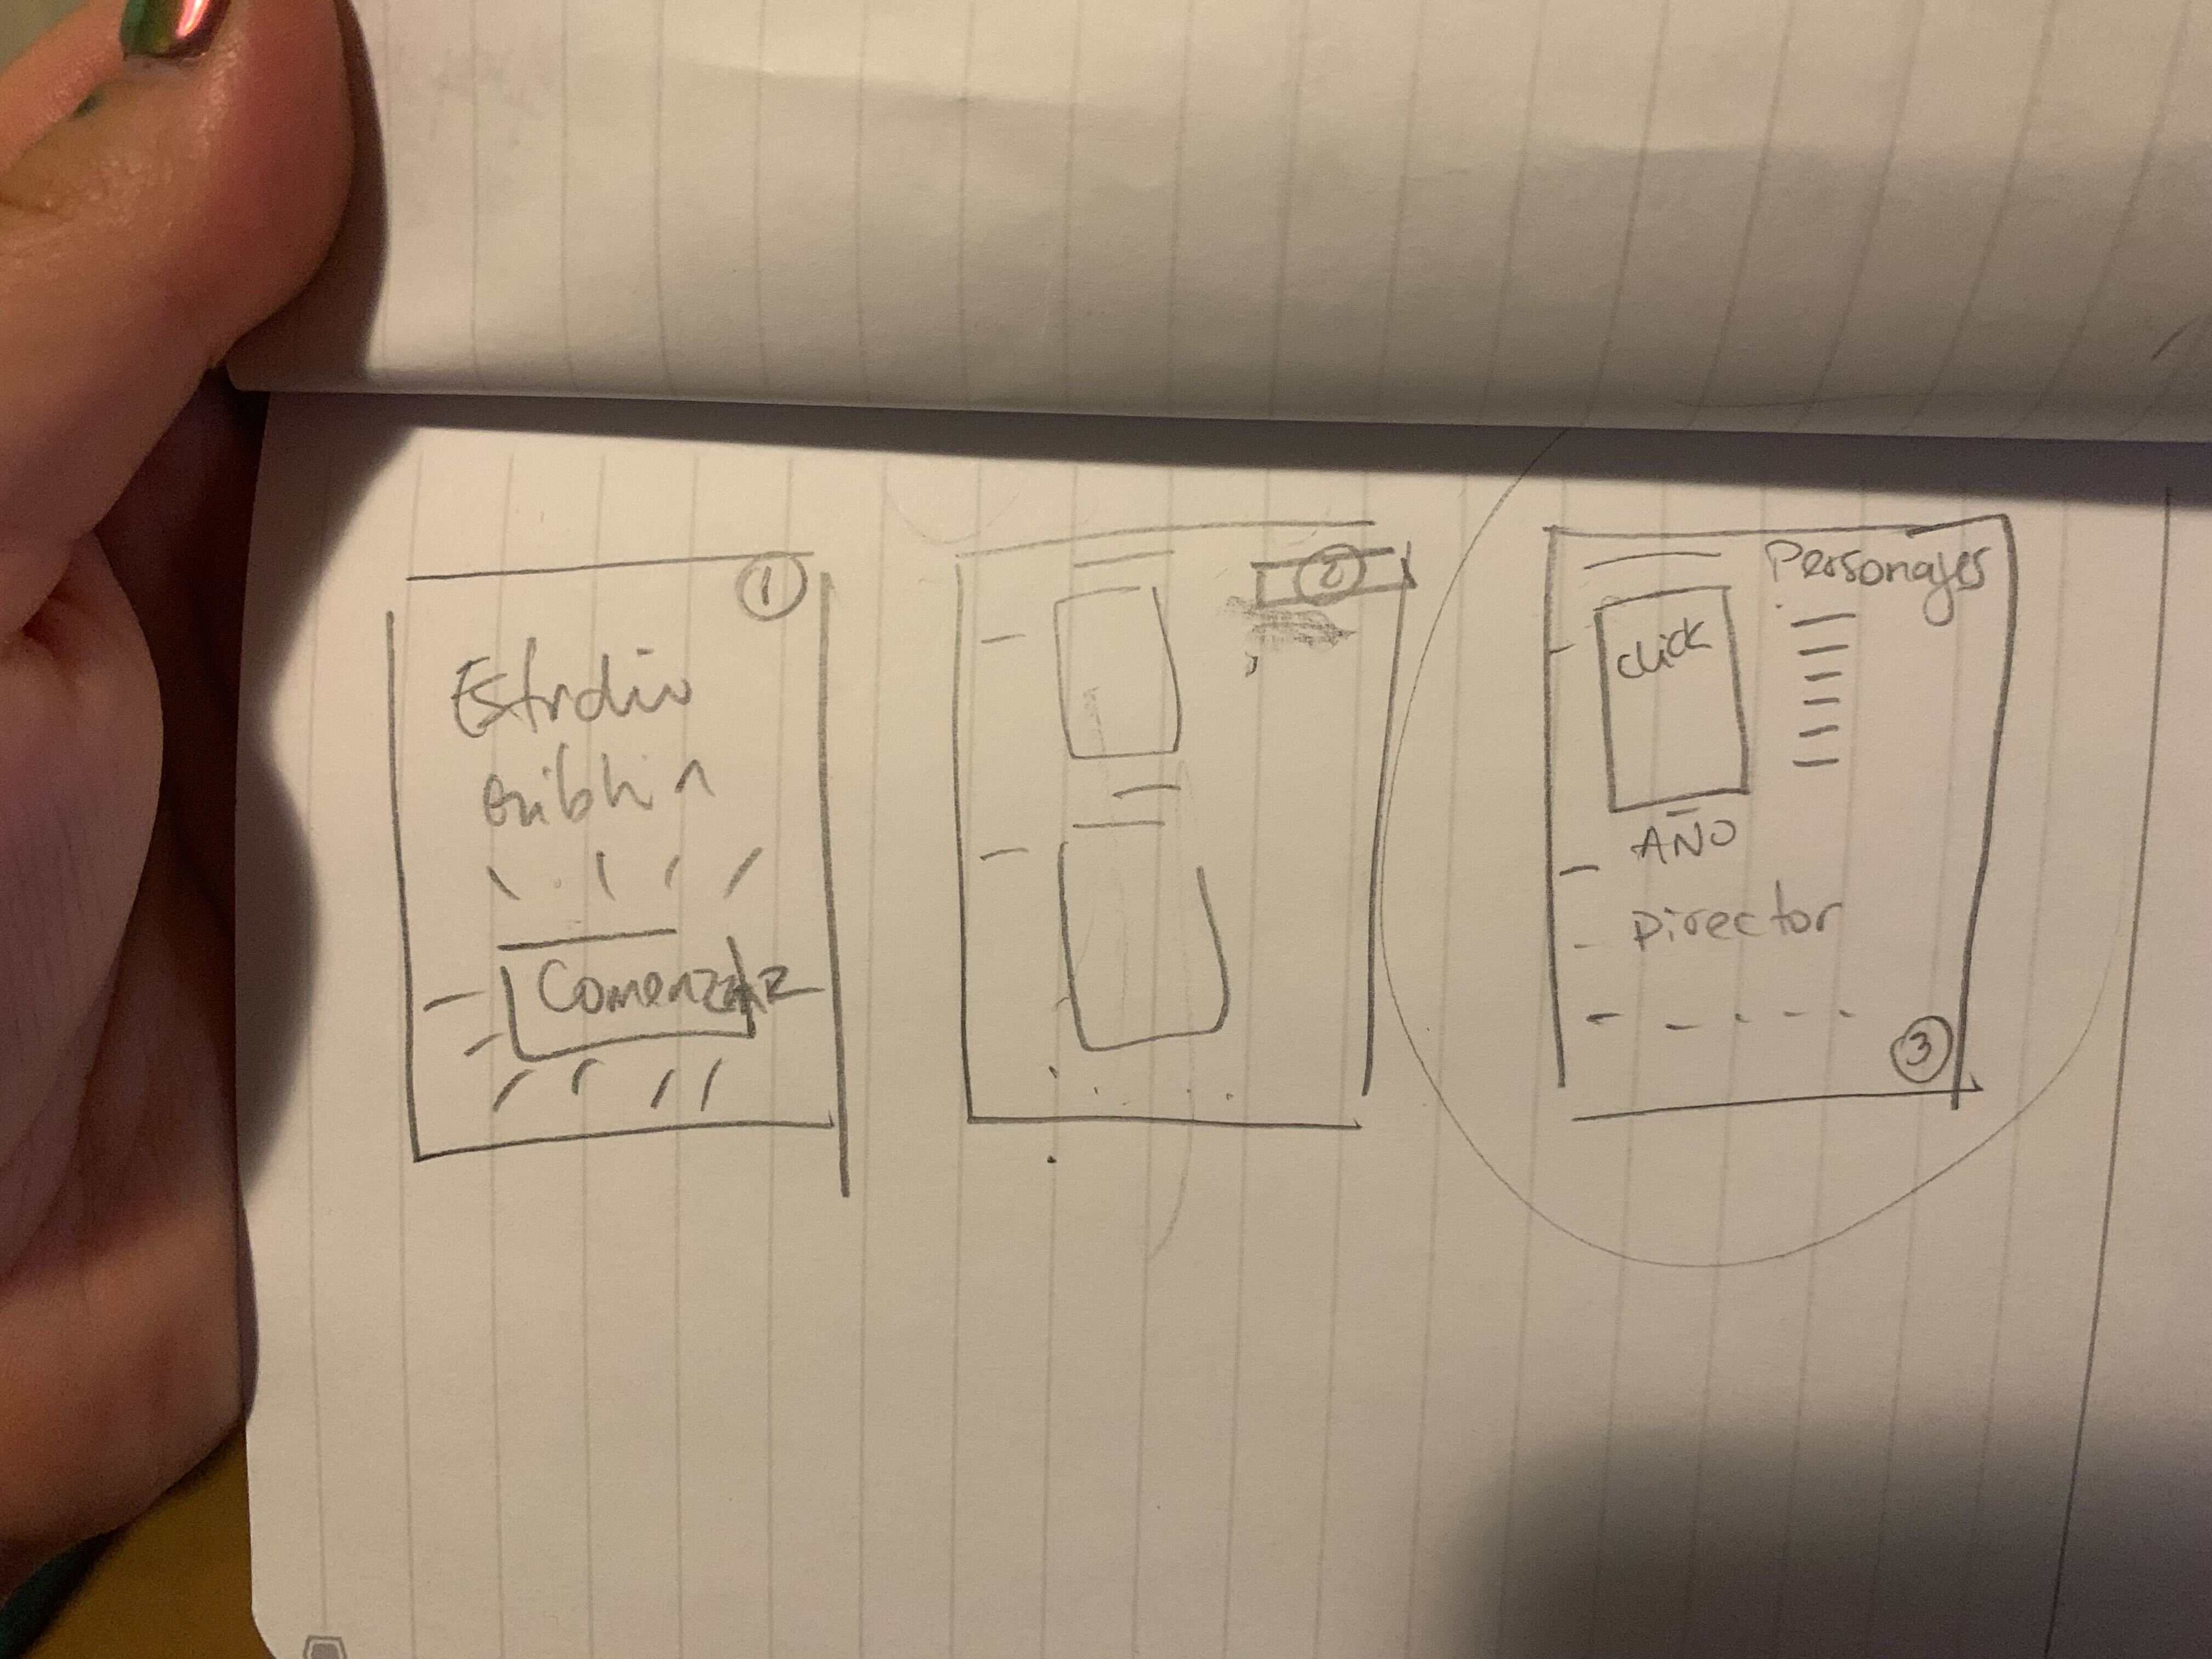 1
Estudio
Comenzar
2
Personajes
click
AÑO
Director
3